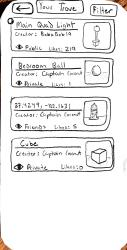 Your Trove
Filter
Main Quad Light
Creator: BoboBob19
Public Likes: 219
Bedroom Ball
Creator: Captain Carrot
Private Likes: 1
37.4274, -122.1631
Creator: Captain Carrot
Friends Likes: 5
Cube
Creator: Captain Carrot
Private Likes: 0